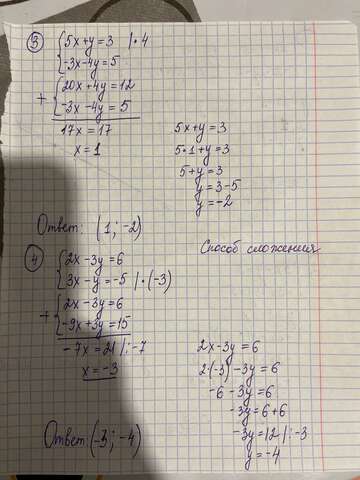 3 { 5x+y=3 |·4
{ -3x-4y=5
+ { 20x+4y=12
{ -3x-4y=5
17x=17
x=1
5x+y=3
5·1+y=3
5+y=3
y=3-5
y=-2
Ответ: (1; -2)
4 { 2x-3y=6
{ 3x-y=-5 |·(-3)
Способ сложения
+ { 2x-3y=6
{ -9x+3y=15
-7x=21 |:-7
x=-3
2x-3y=6
2·(-3)-3y=6
-6-3y=6
-3y=6+6
-3y=12 |:-3
y=-4
Ответ: (-3; -4)